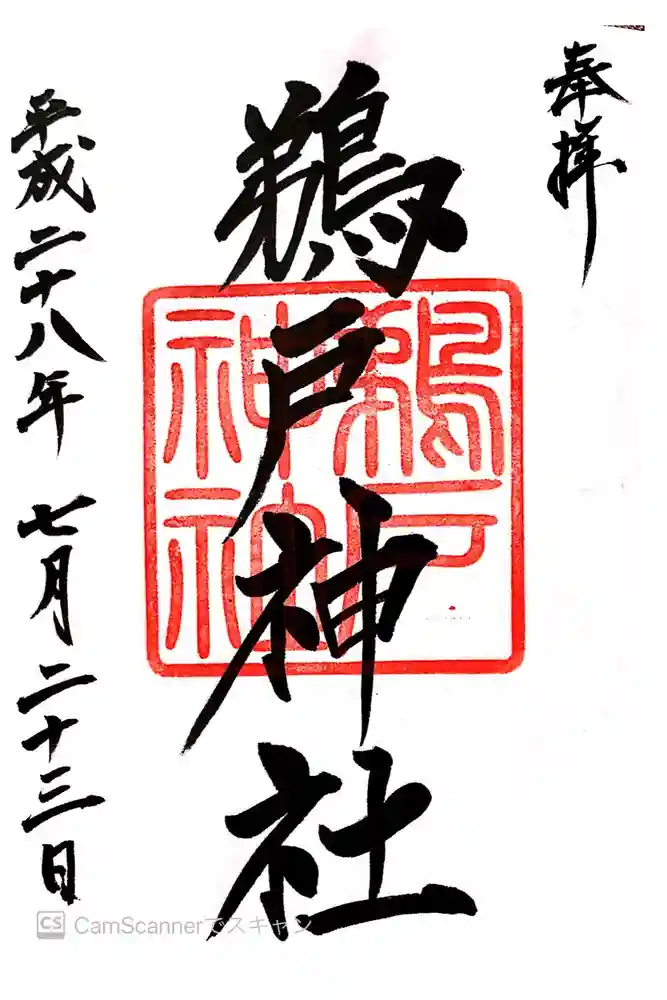 奉拝
鵜戸神社
鵜戸
神
平成二十八年 七月二十三日
CamScannerでスキャン